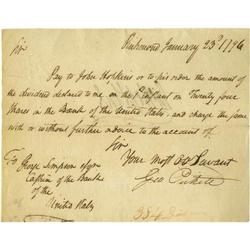 Sir
Richmond January 23d 1796
Pay to John Hopkins or to his order the amount
of the dividend declared to me on the 1st Instant on Twenty four
Shares in the Bank of the United States, and charge the same
with or without further advice to the account of
Sir
Your Most Ob Servant
Geo Pickett
To George Simpson esqr
Cashier of the Bank
of the
United States